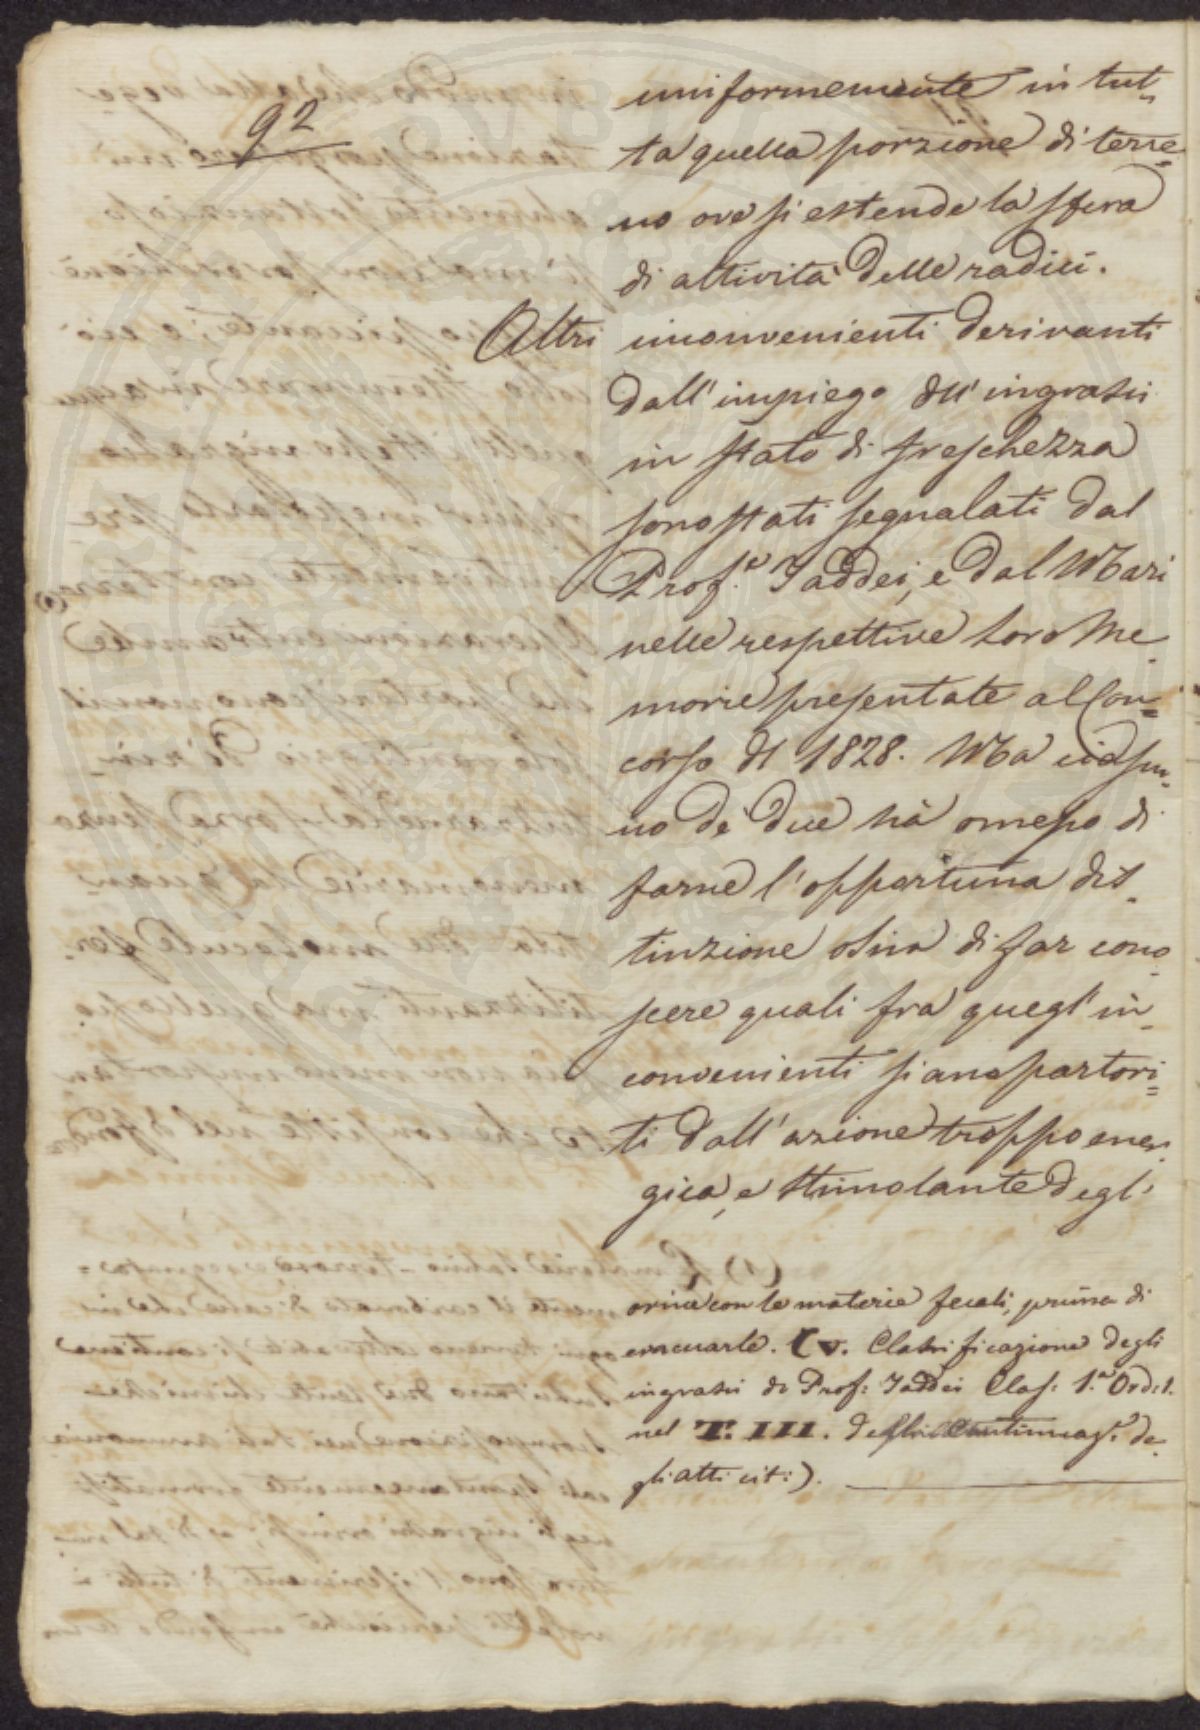 92
uniformemente in tut-
ta quella porzione di terre-
no ove si estende la sfera
di attività delle radici.
Altri inconvenienti derivanti
dall'impiego dell'ingrassi
in stato di freschezza
sono stati segnalati dal
Prof.e Taddei, e dal Mari
nelle respettive loro Me-
morie presentate al Con=
corso del 1828. Ma ciascu-
no de' due hà omesso di
farne l'opportuna dis-
tinzione ossia di far cono-
scere quali fra quegl'in-
convenienti siano partori=
ti dall'azione troppo ener-
gica, e stimolante degl'
orine con le materie fecali, prima di
evacuarle. (v. Classificazione degli
ingrassi de Prof: Taddei Clas: 1.a Ord: 1.
nel T. III. della Continuaz.e de-
gli atti cit:).